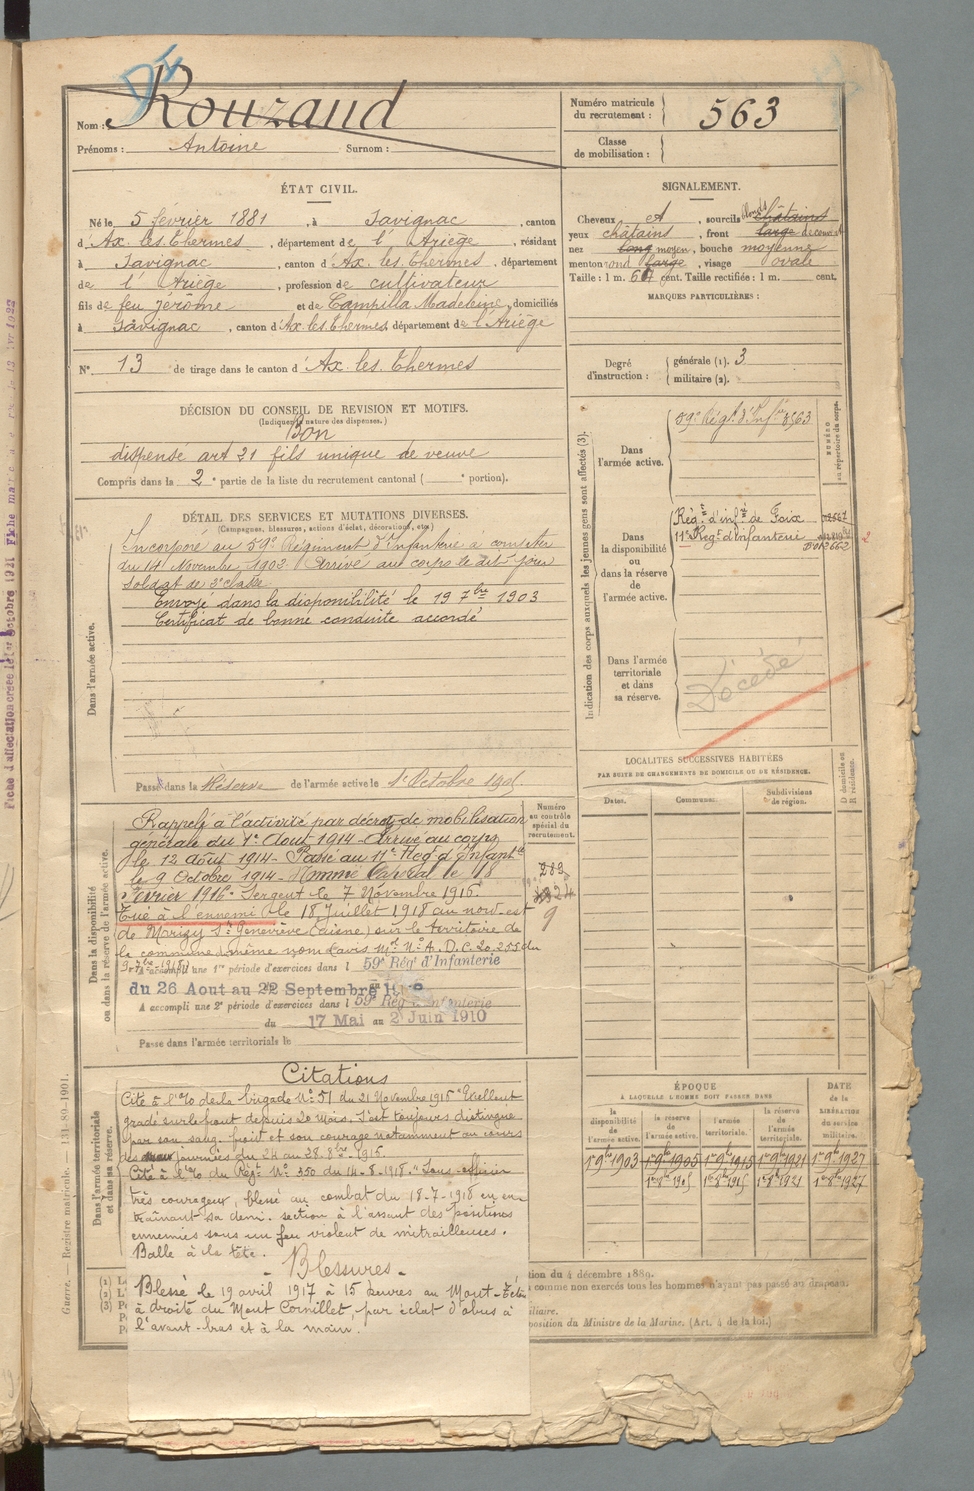 Nom : Rouzaud
Prénoms : Antoine Surnom :
Numéro matricule du recrutement : 563
Classe de mobilisation :
ÉTAT CIVIL.
Né le 5 février 1881, à Savignac, canton
d'Ax. les. Thermes, département de l'Ariège, résidant
à Savignac, canton d'Ax. les. Thermes, département
de l'Ariège, profession de cultivateur
fils de feu Jérôme et de Campilla Madeleine, domiciliés
à Savignac, canton d'Ax. les Thermes, département de l'Ariège
N° 13 de tirage dans le canton d'Ax. les. Thermes
SIGNALEMENT.
Cheveux et, sourcils blonds châtains
yeux châtains, front large découvert
nez long moyen, bouche moyenne
menton rond large, visage ovale
Taille : 1 m. cent. Taille rectifiée : 1 m. cent.
MARQUES PARTICULIÈRES :
Degré d'instruction : générale (1). 3
militaire (2).
DÉCISION DU CONSEIL DE REVISION ET MOTIFS.
(Indiquer la nature des dispenses.)
Bon
dispensé art 21 fils unique de veuve
Compris dans la 2e partie de la liste du recrutement cantonal ( e portion).
DÉTAIL DES SERVICES ET MUTATIONS DIVERSES.
(Campagnes, blessures, actions d'éclat, décorations, etc.)
Dans l'armée active.
Incorporé au 59e Régiment d'Infanterie à compter
du 14 Novembre 1902. Arrivé au corps le dit jour
soldat de 2e classe
Envoyé dans la disponibilité le 19 7bre 1903
Certificat de bonne conduite accordé
Passé dans la Réserve de l'armée active le 1er Octobre
Indication des corps auxquels les jeunes gens sont affectés (3).
NUMÉRO au répertoire du corps.
Dans l'armée active.
59e Régt d'Infie
Dans la disponibilité ou dans la réserve de l'armée active.
Régt d'infie de Foix
11e Régt d'Infanterie
Dans l'armée territoriale et dans sa réserve.
Décédé
LOCALITÉS SUCCESSIVES HABITÉES
PAR SUITE DE CHANGEMENTS DE DOMICILE OU DE RÉSIDENCE.
Dates.
Communes.
Subdivisions de région.
D domicile ou R résidence.
Dans la disponibilité ou dans la réserve de l'armée active.
Numéro au contrôle spécial du recrutement.
Rappelé à l'activité par décret de mobilisation
générale du 1er Aout 1914 - Arrivé au corps
le 12 Août 1914 - Passé au 11e Régt d'Infantie
le 9 Octobre 1914 - Nommé Caporal le 18
Février 1916 - Sergent le 7 Novembre 1916
Tué à l'ennemi le 18 Juillet 1918 au nord-est
de Marizy Ste Geneviève (Aisne) sur le territoire de
la commune même nom (avis Mel N° A. D. C. 20.255 du
9
A accompli une 1re période d'exercices dans l 59e Régt d'Infanterie
du 26 Aout au 22 Septembre
A accompli une 2e période d'exercices dans l 59e Régt d'Infanterie
du 17 Mai au 2 Juin 1910
Passé dans l'armée territoriale le
Dans l'armée territoriale et dans sa réserve.
Citations
Cité à l'o/o de la brigade N° 51 du 21 Novembre 1916 "Excellent
gradé sur le front depuis 20 mois. S'est toujours distingué
par son sang-froid et son courage notamment au cours
des journées du 24 au 28. 8bre 1916.
Cité à l'o/o du Régt N° 350 du 14-8-1918. "Sous-officier
très courageux, blessé au combat du 18-7-1918 en en-
traînant sa demi-section à l'assaut des positions
ennemies sous un feu violent de mitrailleuses.
Balle à la tête.
- Blessures -
Blessé le 19 avril 1917 à 15 heures au Mont-
à droite du Mont Cornillet, par éclat d'obus à
l'avant-bras et à la main.
ÉPOQUE
À LAQUELLE L'HOMME DOIT PASSER DANS
la disponibilité de l'armée active.
la réserve de l'armée active.
l'armée territoriale.
la réserve de l'armée territoriale.
DATE de la LIBÉRATION du service militaire.
19 9bre 1903
1er 8bre 1905 1er 8bre 1915 1er 8bre 1921 1er 8bre 1927
tion du 4 décembre 1889.
comme non exercés tous les hommes n'ayant pas passé au drapeau
iliaire.
position du Ministre de la Marine. (Art. 4 de la loi.)
Guerre. — Registre matricule. — 131-89-1901.